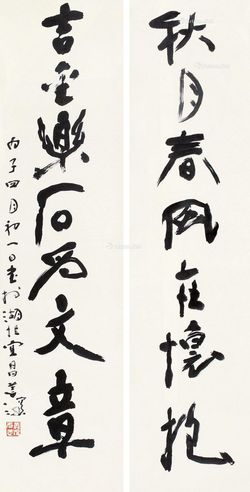 秋月春风在怀抱
吉金樂石為文章
丙子四月初一日书于湖北宜昌